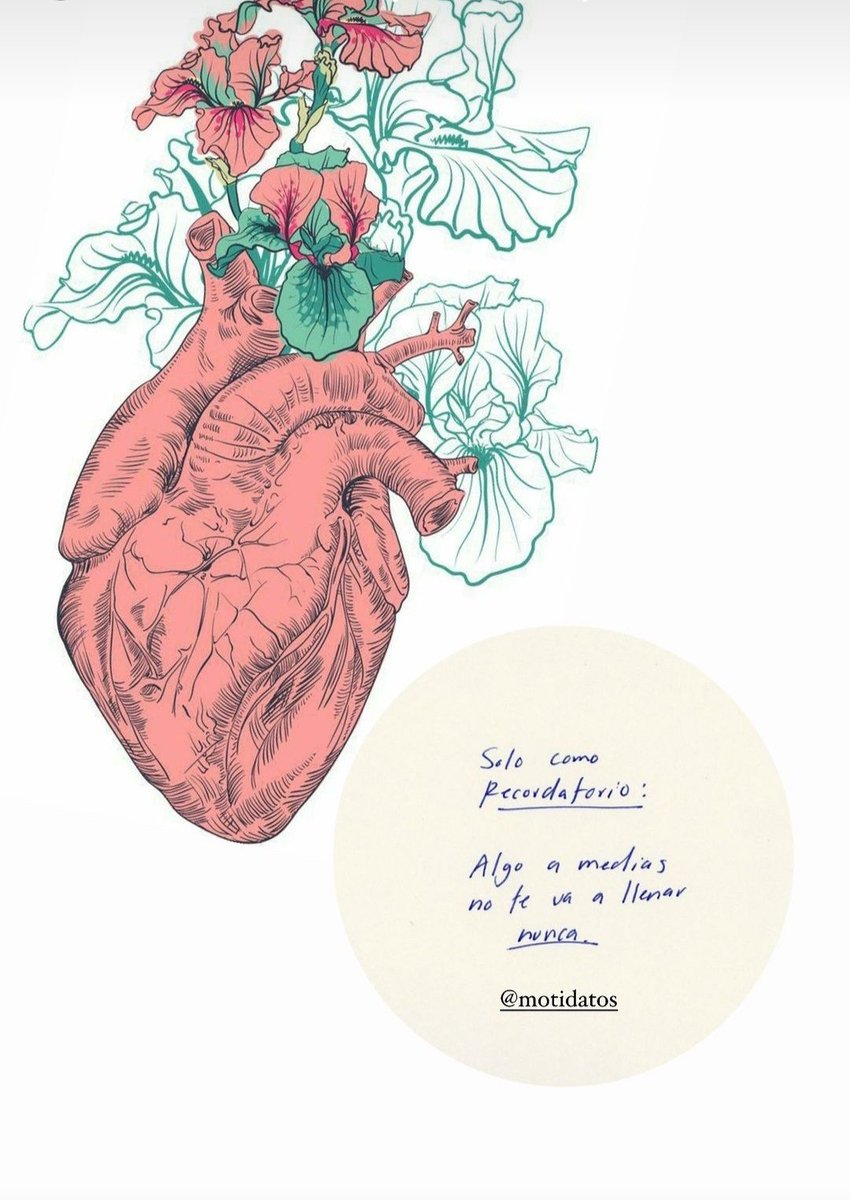 Solo como
Recordatorio:
Algo a medias
no te va a llenar
nunca.
@motidatos